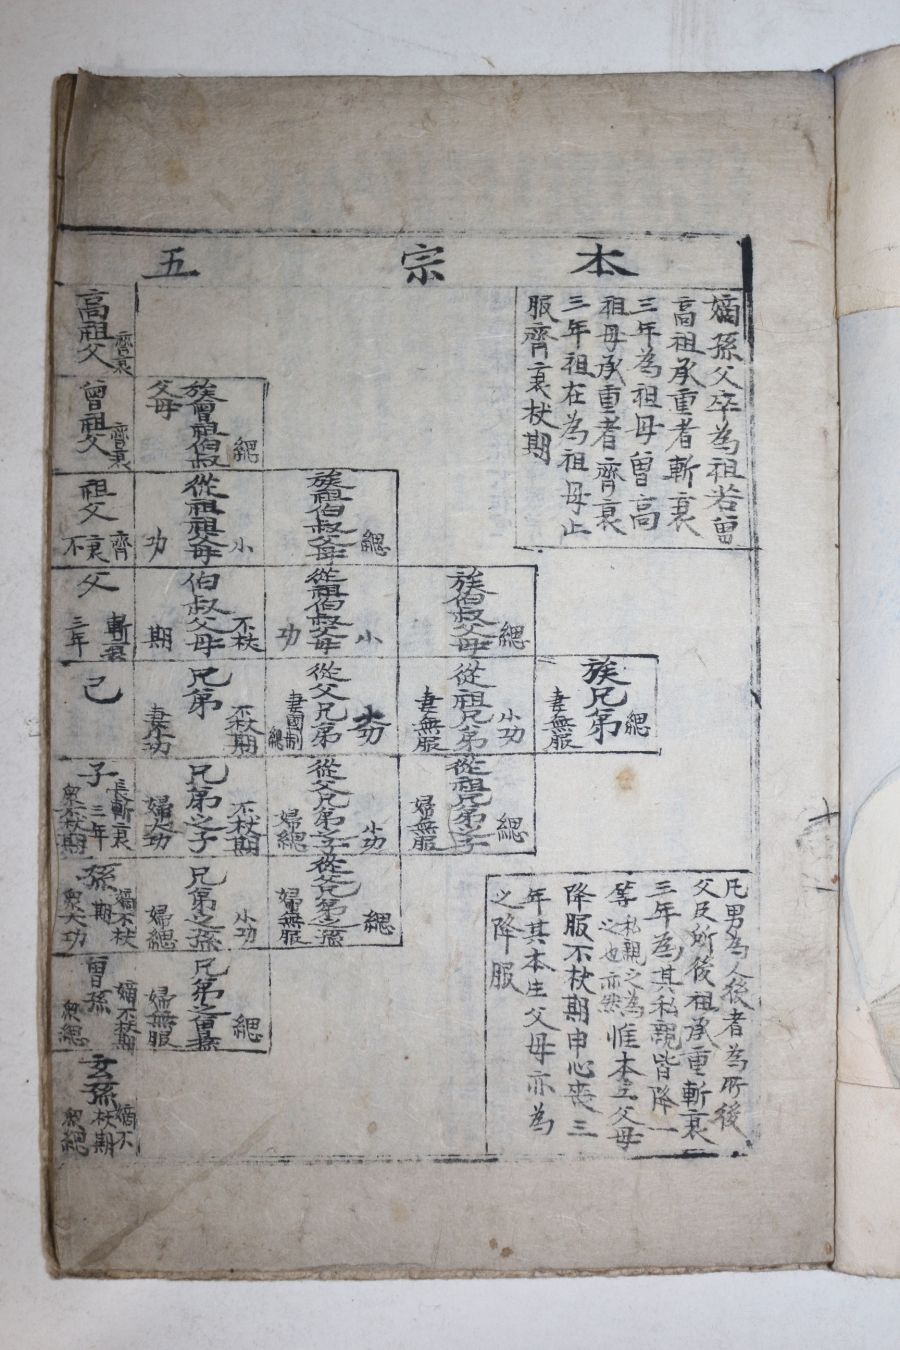 本宗五
嫡孫父卒為祖若曾
高祖承重者斬衰
三年為祖母曾高
祖母承重者齊衰
三年祖在為祖母止
服齊衰杖期
族兄弟
緦
妻無服
族伯叔父母
緦
從祖兄弟
小功
妻無服
從祖兄弟之子
緦
婦無服
族祖伯叔父母
緦
從祖伯叔父母
小功
從父兄弟
大功
妻國制緦
從父兄弟之子
小功
婦緦
從父兄弟之孫
緦
婦無服
族曾祖伯叔父母
緦
從祖祖父母
小功
伯叔父母
不杖期
兄弟
不杖期
妻小功
兄弟之子
不杖期
婦大功
兄弟之孫
小功
婦緦
兄弟之曾孫
緦
婦無服
高祖父
齊衰
曾祖父
齊衰
祖父
齊衰不
父
斬衰三年
己
子
長斬衰三年
眾不杖期
孫
嫡不杖期
眾大功
曾孫
嫡不杖期
眾緦
玄孫
嫡不杖期
眾緦
凡男為人後者為所後
父及所後祖承重斬衰
三年為其私親皆降一
等私親之為之也亦然惟本生父母
降服不杖期申心喪三
年其本生父母亦為
之降服